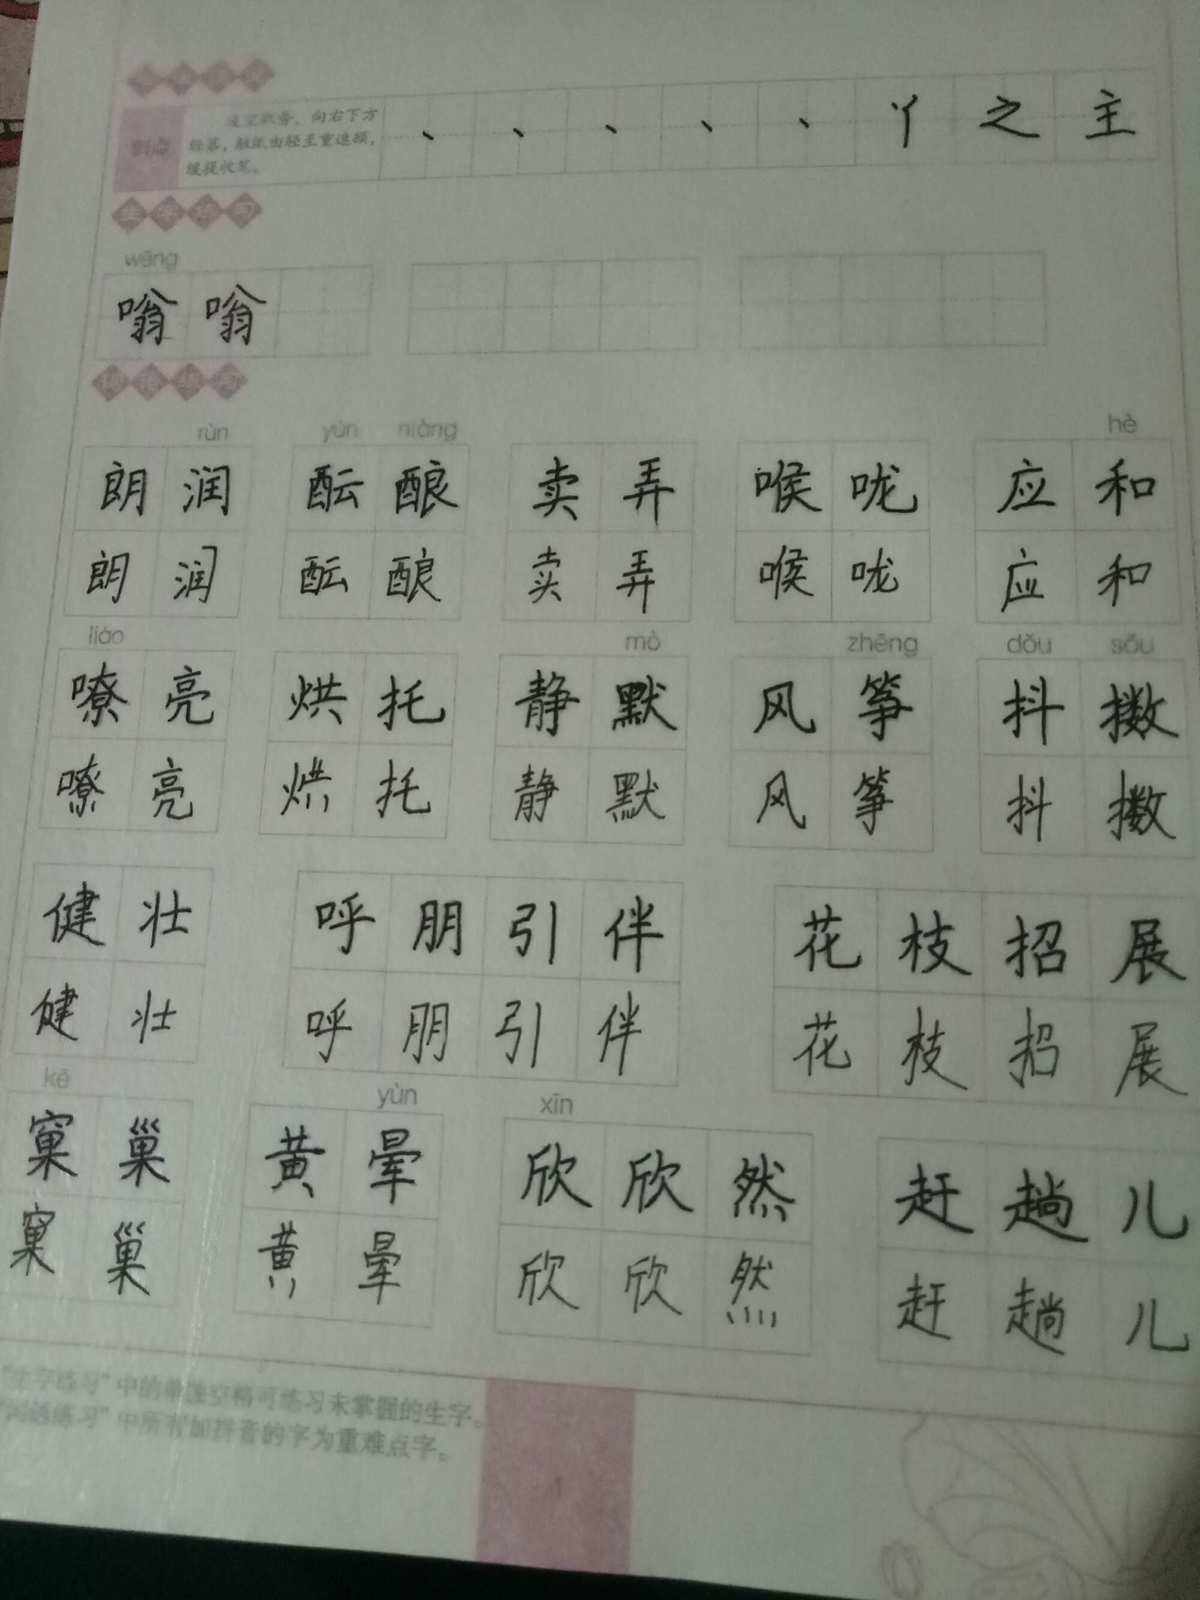 斜点 凌空取势，向右下方
轻落，触纸由轻至重速顿，
缓提收笔。
、 、 、 、 、 丫 之 主
生字练习
wēng
嗡 嗡
词语练习
rùn yùn niàng hè
朗润 酝酿 卖弄 喉咙 应和
朗润 酝酿 卖弄 喉咙 应和
liáo mò zhēng dǒu sǒu
嘹亮 烘托 静默 风筝 抖擞
嘹亮 烘托 静默 风筝 抖擞
健壮 呼朋引伴 花枝招展
健壮 呼朋引伴 花枝招展
kē yùn xīn
窠巢 黄晕 欣欣然 赶趟儿
窠巢 黄晕 欣欣然 赶趟儿
"生字练习"中的单独空格可练习未掌握的生字。
"词语练习"中所有加拼音的字为重难点字。
1